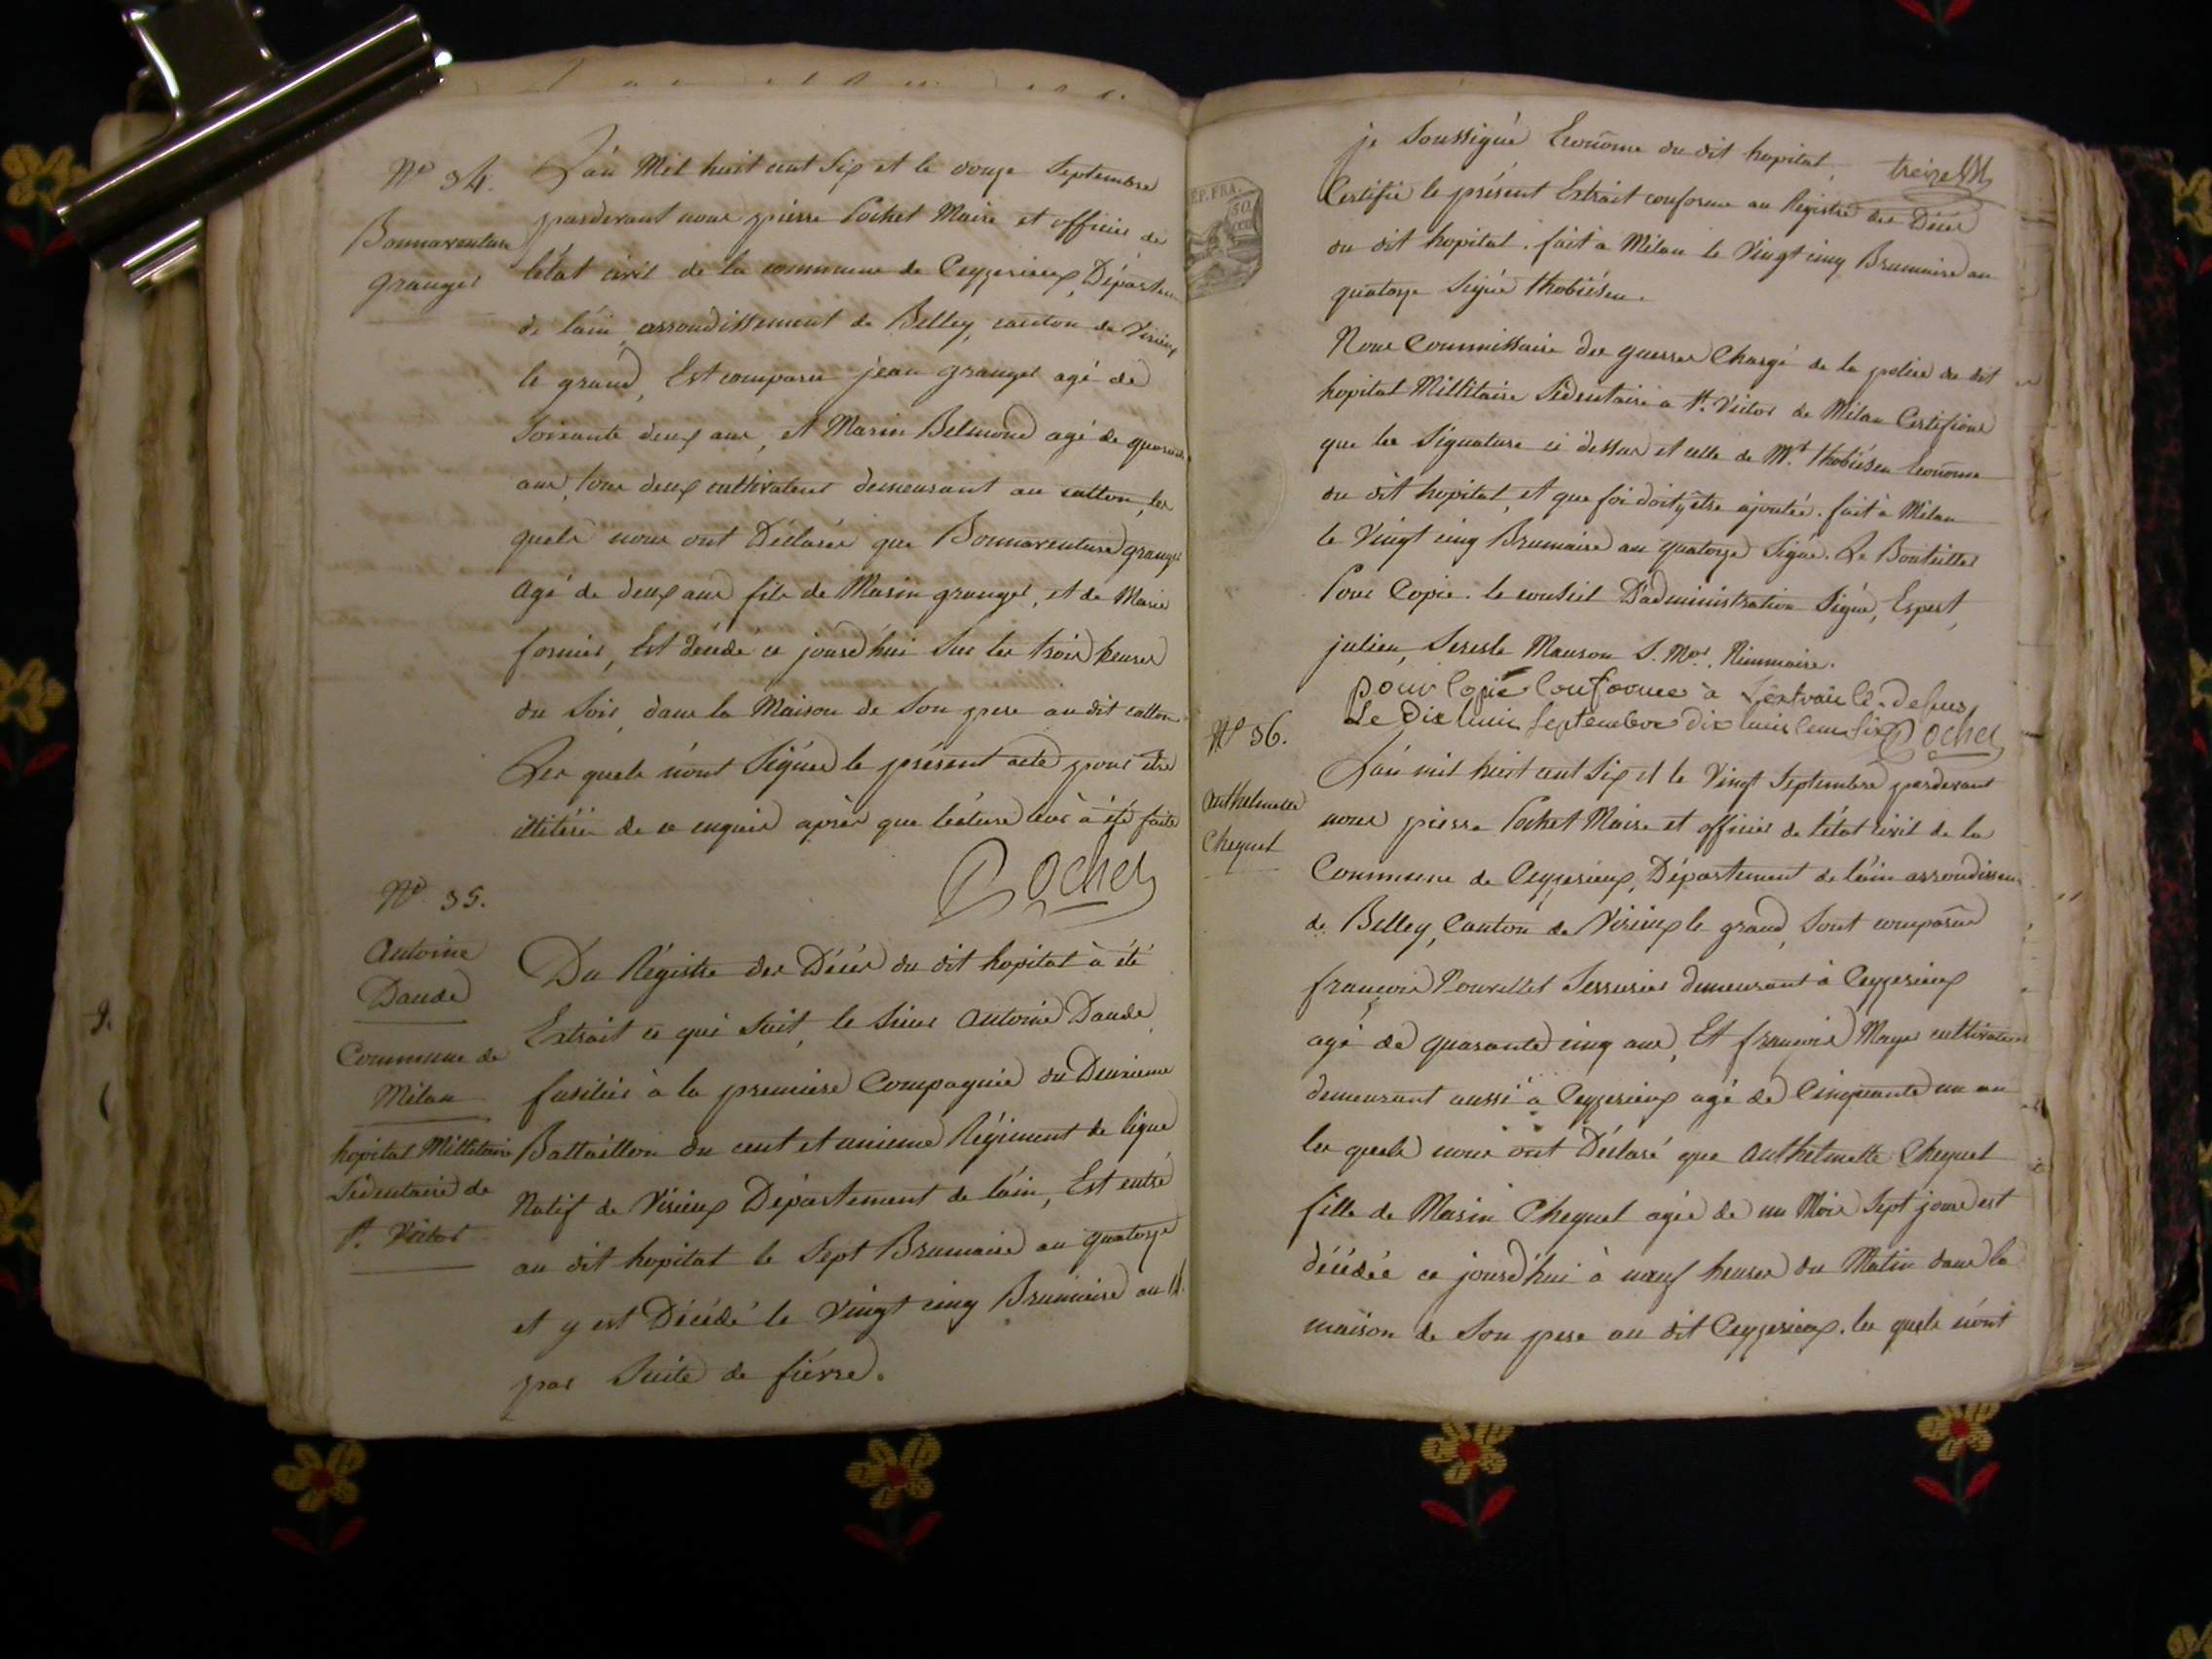 N.º 34.
Bonnaventure
granger
L'an Mil huit cent six et le douze Septembre
pardevant nous pierre Pochet Maire et officier de
l'état civil de la commune de Ceyzerieux, Départem
de l'ain, arrondissement de Belley, canton de Virieux
le grand, Est comparu jean granger agé de
Soixante deux ans, et Marin Belmond agé de quarante
ans, tous deux cultivateurs demeurant au catton, les
quels nous ont Déclarés que Bonnaventure granger
agé de deux ans fils de Marin granger, et de Marie
fornier, Est décédé ce jourd'hui sur les trois heures
du soir, dans la Maison de son pere au dit catton.
Les quels n'ont Signés le présent acte pour être
illitérés de ce enquis après que lécture leur à été faite
Pochet
N.º 35.
Antoine
Daude
Commune de
Milan
hopital Millitaire
Sédentaire de
S.t Victor
Du Régistre des Décès du dit hopital à été
Extrait ce qui suit, le Sieur Antoine Daude
fusilier à la premiere Compagnie du Deuxieme
Battaillon du cent et onzieme Régiment de ligne
Natif de Virieux Département de l'ain, Est entré
au dit hopital le Sept Brumaire an quatorze
et y est Décédé le Vingt cinq Brumaire an 14.
par Suite de fièvre.
treize
EP. FRA.
50
je Soussigné Econome du dit hopital,
Certifie le présent Extrait conforme au Régistre des Décès
du dit hopital. fait à Milan le Vingt cinq Brumaire an
quatorze Signé thobiésen.
Nous Commissaire des guerres Chargé de la police du dit
hopital Millitaire Sédentaire à S.t Victor de Milan Certifions
que la Signature ci dessus est celle de M.r thobiésen Econome
du dit hopital, et que foi doit y être ajoutée. fait à Milan
le Vingt cinq Brumaire an quatorze Signé. Le Bouteiller
Pour Copie. le conseil D'administration Signé, Espert,
julien, Manson S. M.or
pour Copie Conforme à Lextrait ci-desus
Le Dix huit septembre dix huit cent six Pochet
N.º 36.
Anthelmette
Chequet
L'an mil huit cent Six et le Vingt Septembre pardevant
nous pierre Pochet Maire et officier de l'état civil de la
Commune de Ceyzerieux, Département de l'ain arrondissem
de Belley, Canton de Virieux le grand, Sont comparus
françois Pourillet Serrurier demeurant à Ceyzerieux
agé de quarante cinq ans, Et françois Maye cultivateur
demeurant aussi à Ceyzerieux agé de Cinquante un an
les quels nous ont Déclaré que Anthelmette Chequet
fille de Marin Chequet agée de un Mois Sept jours est
décédée ce jourd'hui à neuf heures du Matin dans la
maison de Son pere au dit Ceyzerieux. les quels n'ont